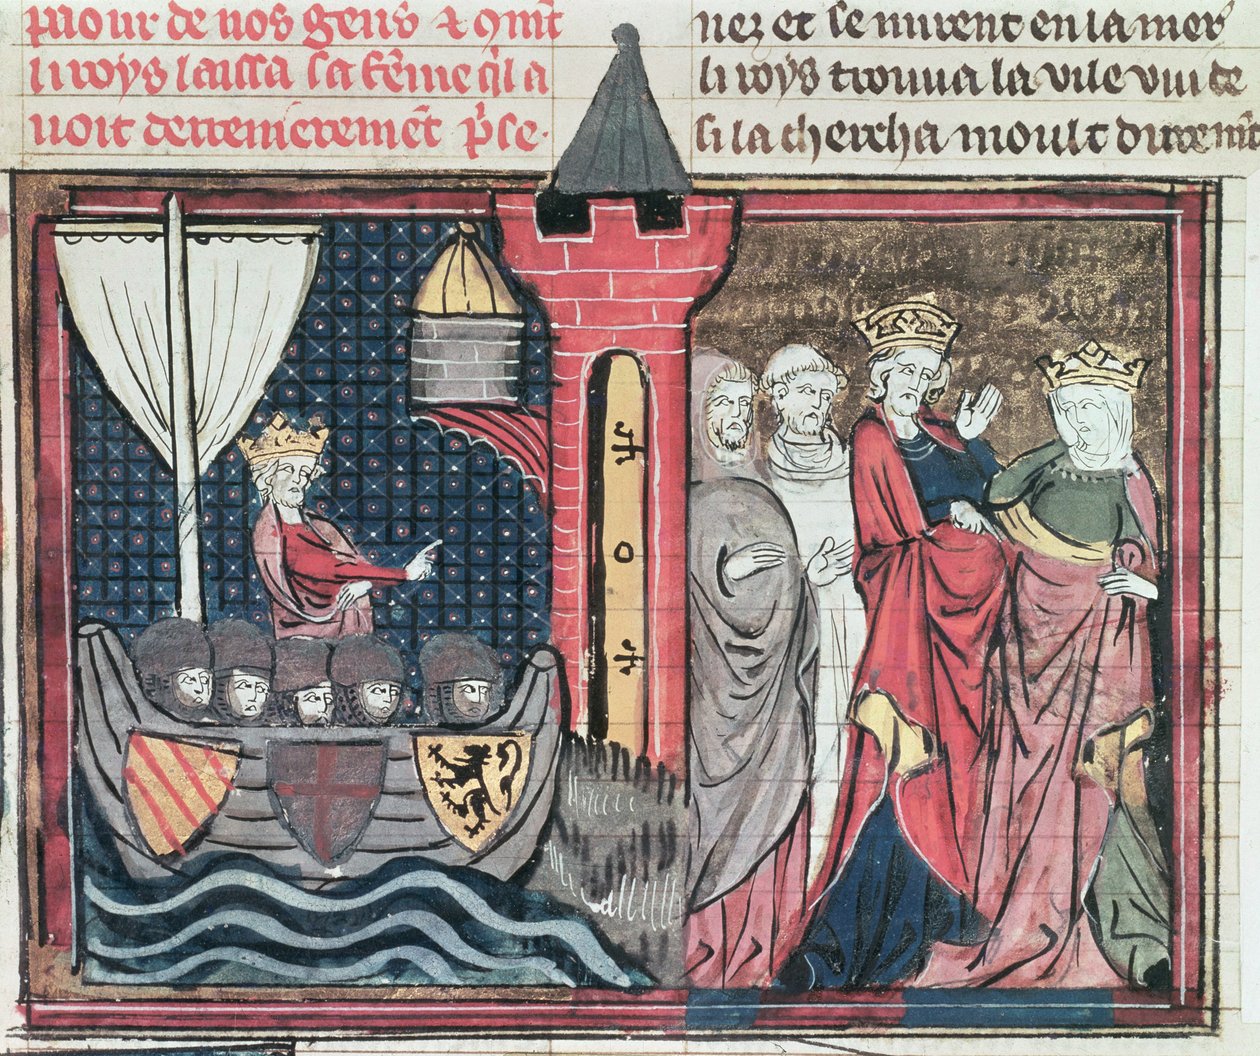 puour de nos gens & qm̃t
li roys laissa sa fẽme q̃l a
uoit derrenieremẽt p̃se.
nez et se mirent en la mer
li roys trouua la uile vui de
si la chercha moult durem̃